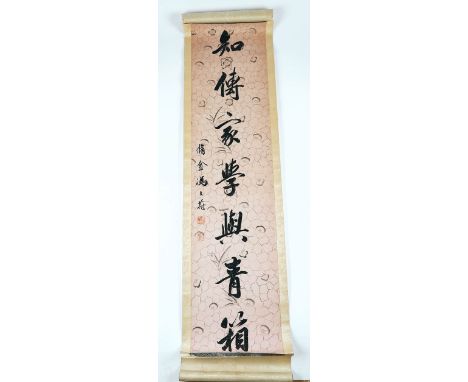 知傳家學與青箱